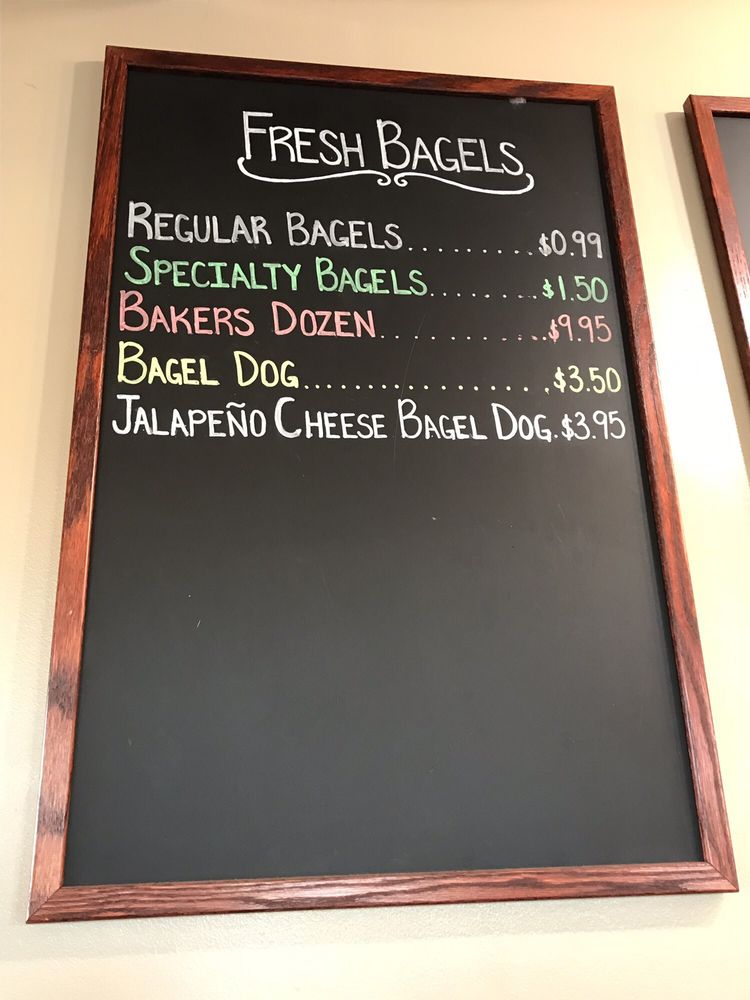 FRESH BAGELS
REGULAR BAGELS........$0.99
SPECIALTY BAGELS........$1.50
BAKERS DOZEN............$9.95
BAGEL DOG...................$3.50
JALAPEÑO CHEESE BAGEL DOG.$3.95